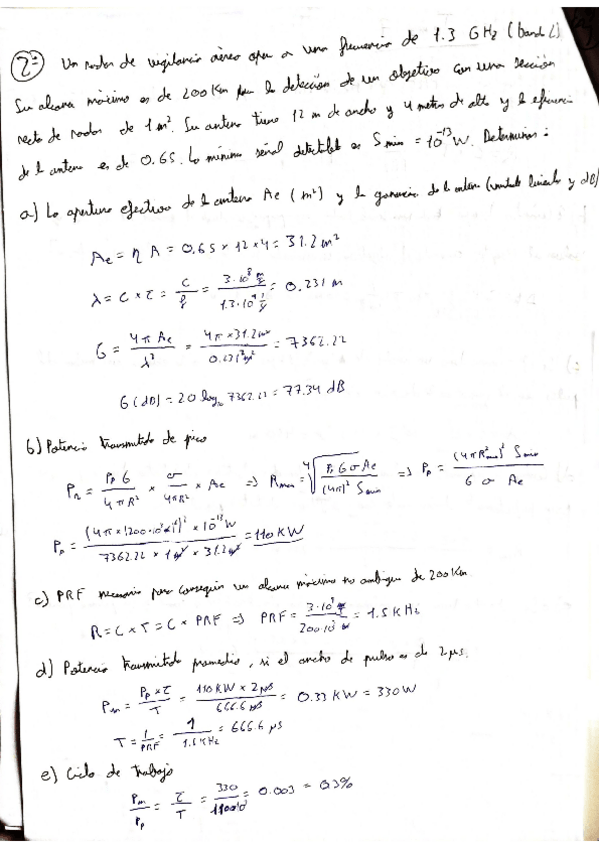 2º Un radar de vigilancia aérea opera a una frecuencia de 1.3 GHz (banda L)
Su alcance máximo es de 200 Km para la detección de un objetivo con una sección
recta de radar de 1 m². Su antena tiene 12 m de ancho y 4 metros de alto y la eficiencia
de la antena es de 0.65. La mínima señal detectable es Smin = 10⁻¹³ W. Determinar:
a) La apertura efectiva de la antena Ae (m²) y la ganancia de la antena (unidades lineales y dB)
Ae = η A = 0.65 × 12 × 4 = 31.2 m²
λ = C × τ = C/f = 3·10⁸ m/s / 1.3·10⁹ 1/s = 0.231 m
G = 4π Ae / λ² = 4π × 31.2 m² / 0.231² m² = 7362.22
G (dB) = 20 log₁₀ 7362.22 = 77.34 dB
b) Potencia transmitida de pico
PR = Pp G / 4πR² × σ / 4πR² × Ae => Rmax = ⁴√(Pp G σ Ae / (4π)² Smin) => Pp = (4πR²max)² Smin / G σ Ae
Pp = (4π × (200·10³)²)² × 10⁻¹³ W / 7362.22 × 1 m² × 31.2 m² = 110 KW
c) PRF necesaria para conseguir un alcance máximo no ambiguo de 200 Km
R = C × T = C × PRF => PRF = 3·10⁸ / 200·10³ = 1.5 KHz
d) Potencia transmitida promedio, si el ancho de pulso es de 2 μs.
Pm = Pp × τ / T = 110 KW × 2 μs / 666.6 μs = 0.33 KW = 330 W
T = 1/PRF = 1 / 1.5 KHz = 666.6 μs
e) Ciclo de trabajo
Pm / Pp = τ / T = 330 / 110000 = 0.003 = 0.3%